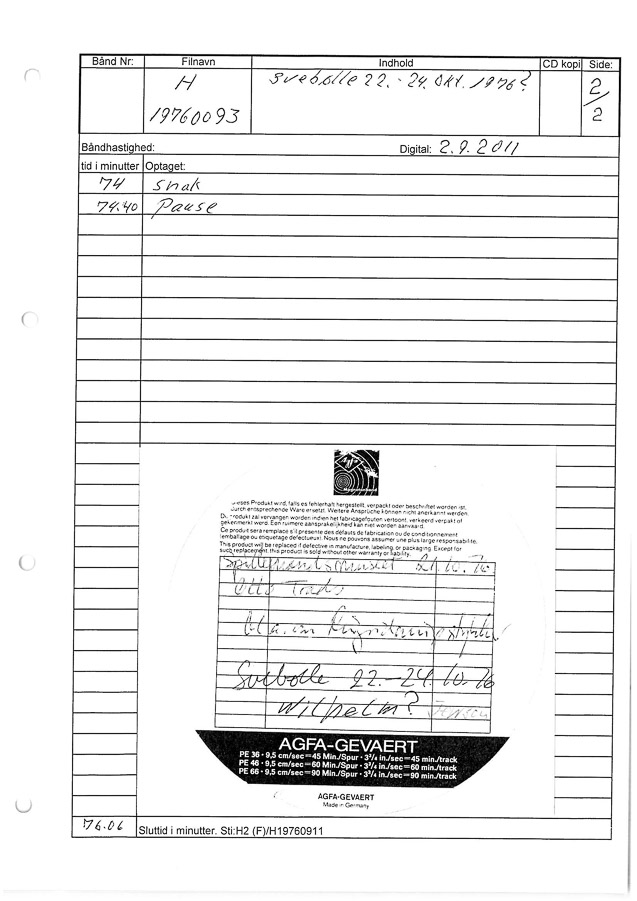 Bånd Nr: Filnavn Indhold CD kopi Side:
H Svebølle 22.-24. Okt. 1976? 2/2
19760093
Båndhastighed: Digital: 2.9.2011
tid i minutter Optaget:
74 snak
74.40 Pause
Dieses Produkt wird, falls es fehlerhaft hergestellt, verpackt oder beschriftet worden ist,
durch entsprechende Ware ersetzt. Weitere Ansprüche können nicht anerkannt werden.
Dit produkt zal vervangen worden indien het fabricagefouten vertoont, verkeerd verpakt of
gekenmerkt werd. Een ruimere aansprakelijkheid kan niet worden aanvaard.
Ce produit sera remplacé s'il présente des défauts de fabrication ou de conditionnement
(emballage ou étiquetage défectueux). Nous ne pouvons assumer une plus large responsabilité.
This product will be replaced if defective in manufacture, labeling, or packaging. Except for
such replacement, this product is sold without other warranty or liability.
21.10.76
Otto Trads
Svebølle 22.-24.10.76
Wilhelm? Jensen
AGFA-GEVAERT
PE 36 • 9,5 cm/sec=45 Min./Spur • 3¾ in./sec=45 min./track
PE 46 • 9,5 cm/sec=60 Min./Spur • 3¾ in./sec=60 min./track
PE 66 • 9,5 cm/sec=90 Min./Spur • 3¾ in./sec=90 min./track
AGFA-GEVAERT
Made in Germany
76.06 Sluttid i minutter. Sti:H2 (F)/H19760911